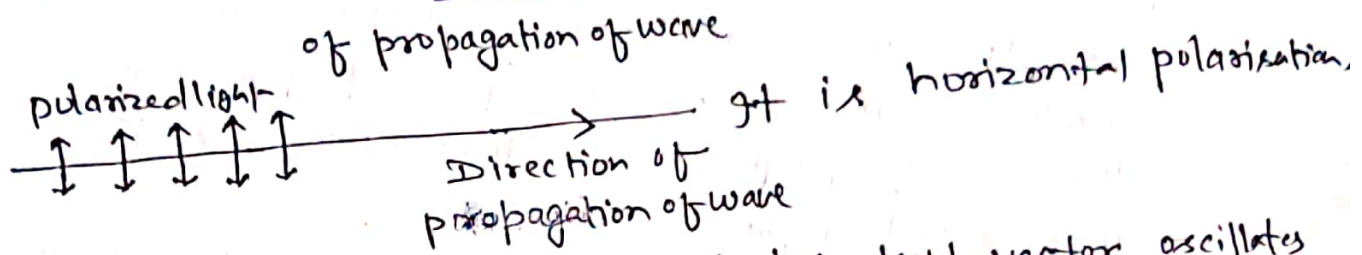 of propagation of wave
polarized light It is horizontal polarisation.
Direction of
propagation of wave
vector oscillates